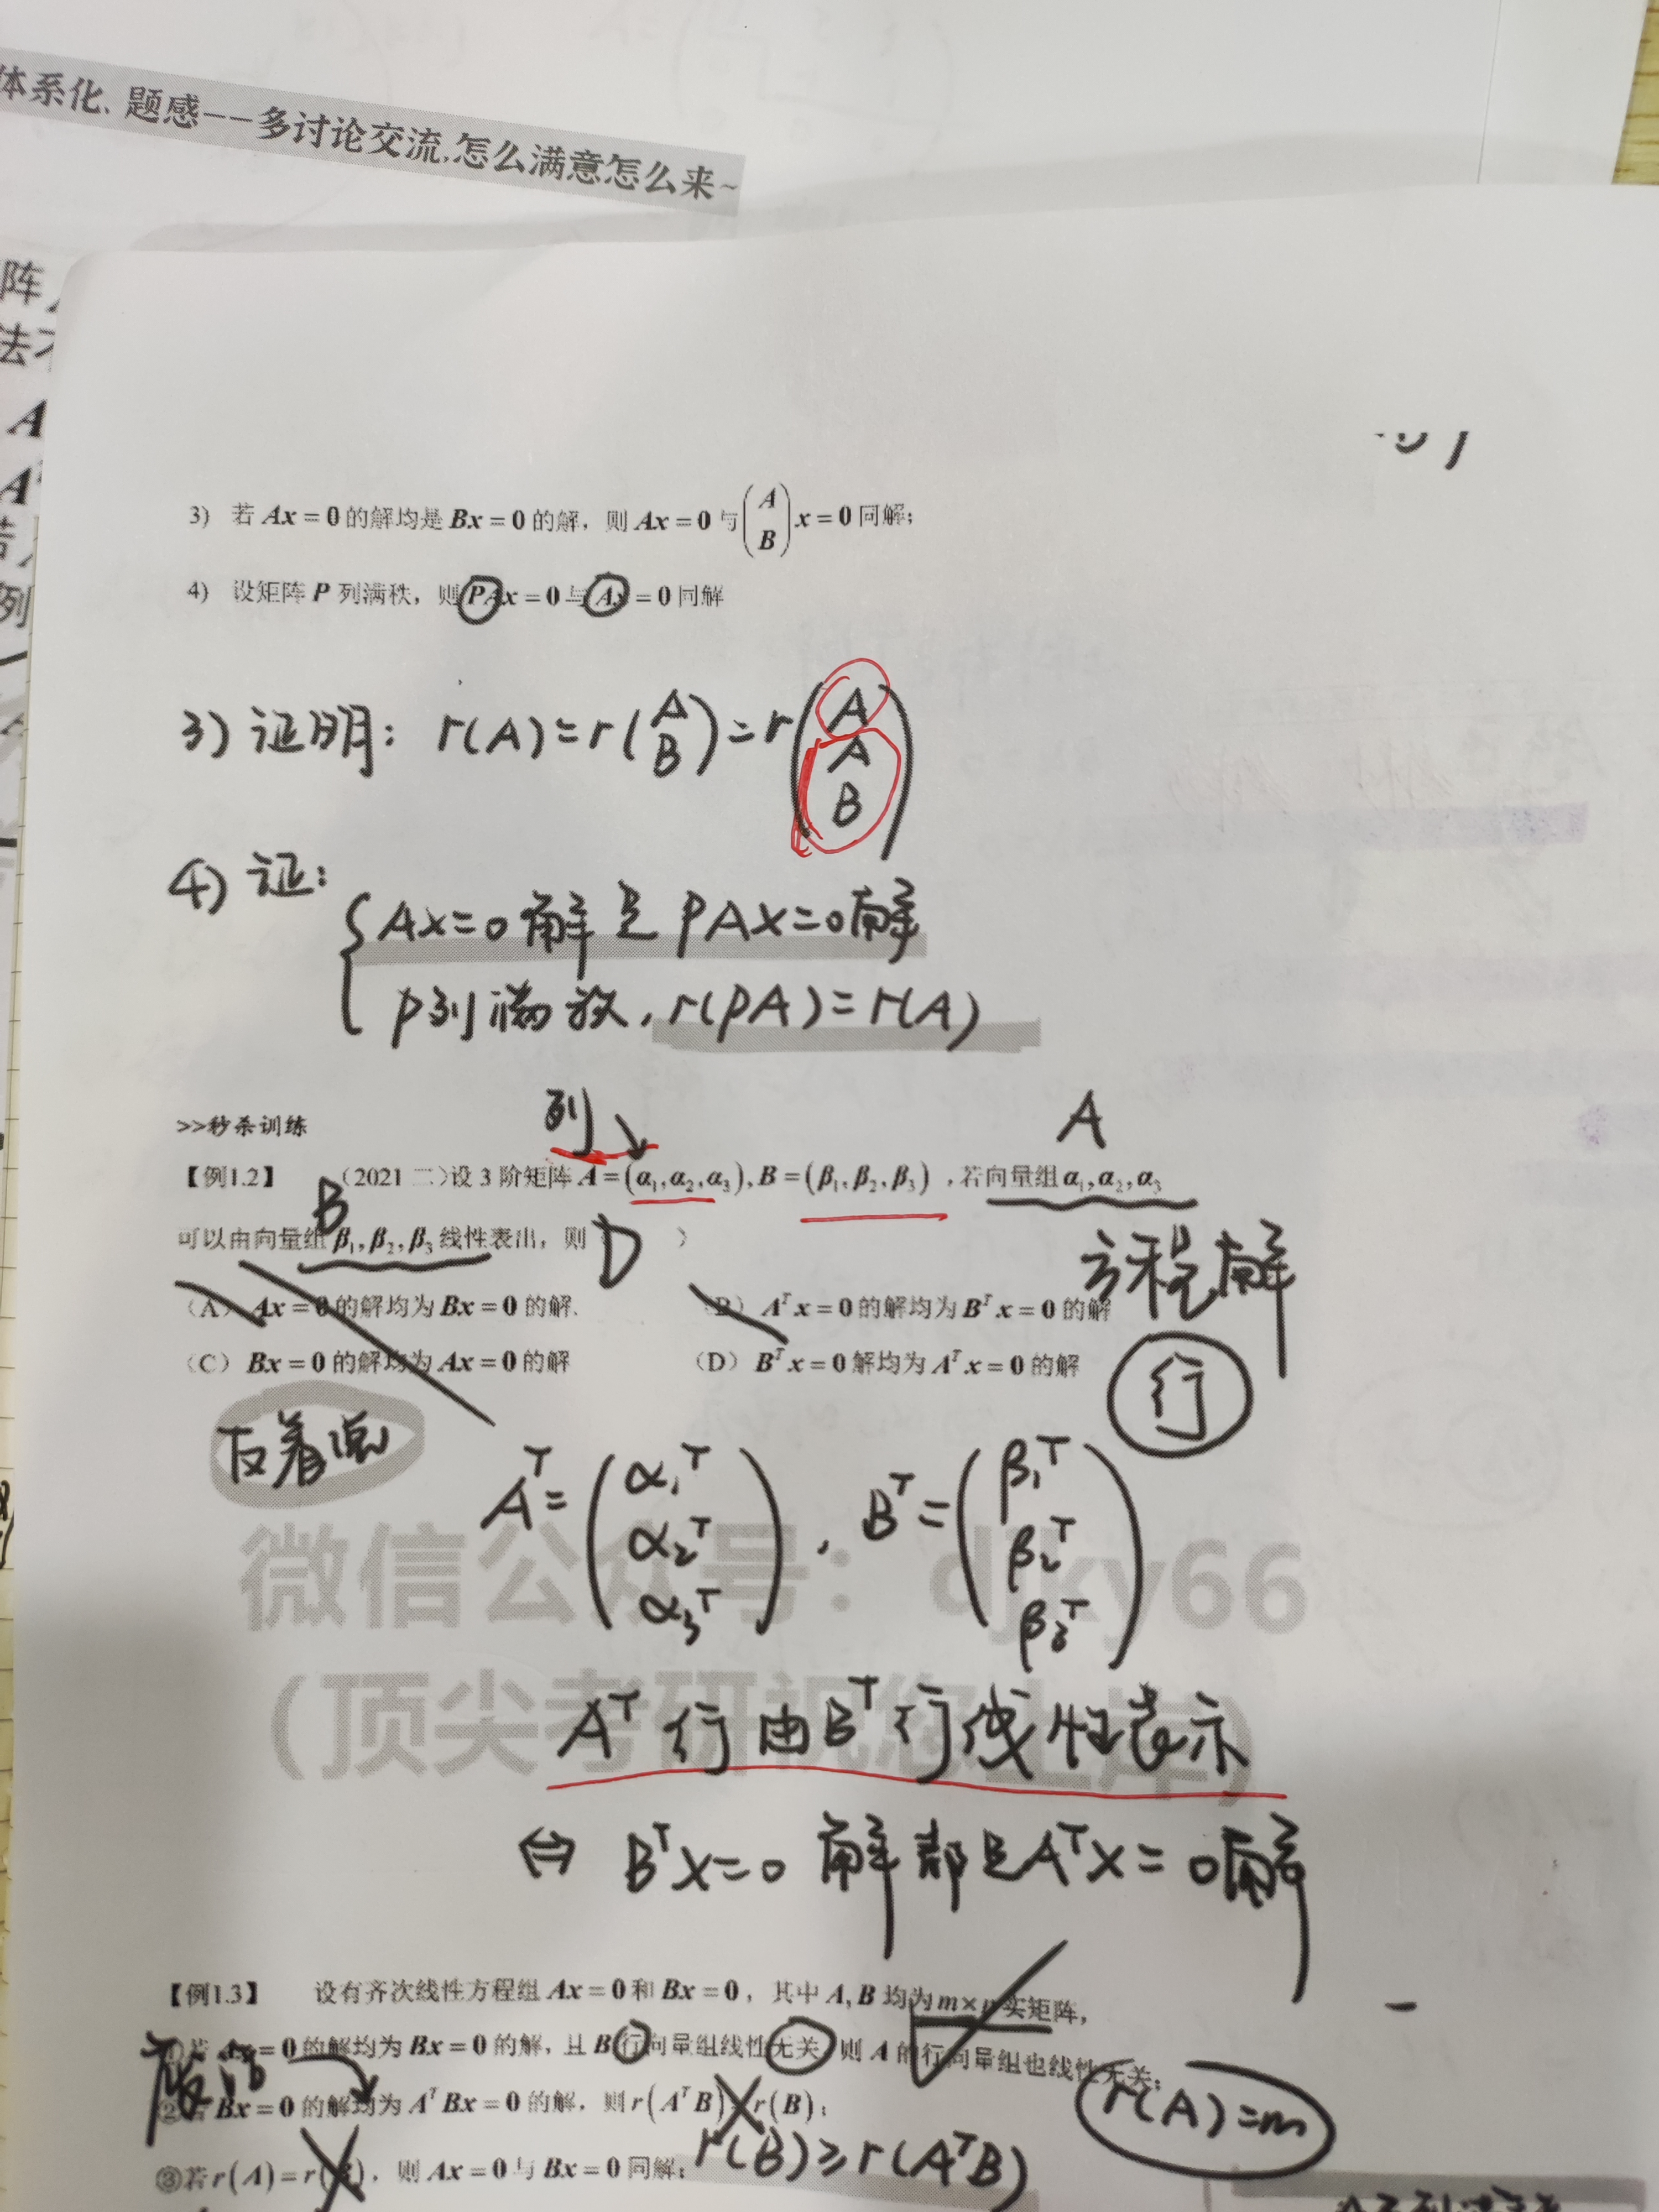 体系化、题感--多讨论交流,怎么满意怎么来~
阵
法
A
A
列
3) 若 Ax = 0 的解均是 Bx = 0 的解，则 Ax = 0 与 (A B) x = 0 同解；
4) 设矩阵 P 列满秩，则 PAx = 0 与 Ax = 0 同解
3) 证明: r(A)=r(A B)=r(A A B)
4) 证:
Ax=0解是PAX=0解
P列满秩, r(PA)=r(A)
>>秒杀训练
列
A
【例1.2】 (2021 二)设 3 阶矩阵 A = (α₁, α₂, α₃), B = (β₁, β₂, β₃) , 若向量组 α₁, α₂, α₃
B
可以由向量组 β₁, β₂, β₃ 线性表出，则 D )
方程解
(A) Ax = 0 的解均为 Bx = 0 的解.
(B) Aᵀx = 0 的解均为 Bᵀx = 0 的解
(C) Bx = 0 的解均为 Ax = 0 的解
(D) Bᵀx = 0 解均为 Aᵀx = 0 的解
行
反着说
Aᵀ = (α₁ᵀ α₂ᵀ α₃ᵀ), Bᵀ = (β₁ᵀ β₂ᵀ β₃ᵀ)
微信公众号：djky66
(顶尖考研祝您上岸)
Aᵀ行由Bᵀ行线性表示
⇔ BᵀX=0 解都是AᵀX=0解
【例1.3】 设有齐次线性方程组 Ax = 0 和 Bx = 0，其中 A, B 均为 m×n 实矩阵，
①若 Ax = 0 的解均为 Bx = 0 的解，且 B 行向量组线性无关 则 A 的行向量组也线性无关；
②若 Bx = 0 的解均为 AᵀBx = 0 的解，则 r(AᵀB) r(B)；
r(A)=m
③若 r(A) = r(B)，则 Ax = 0 与 Bx = 0 同解；
r(B)≥r(AᵀB)